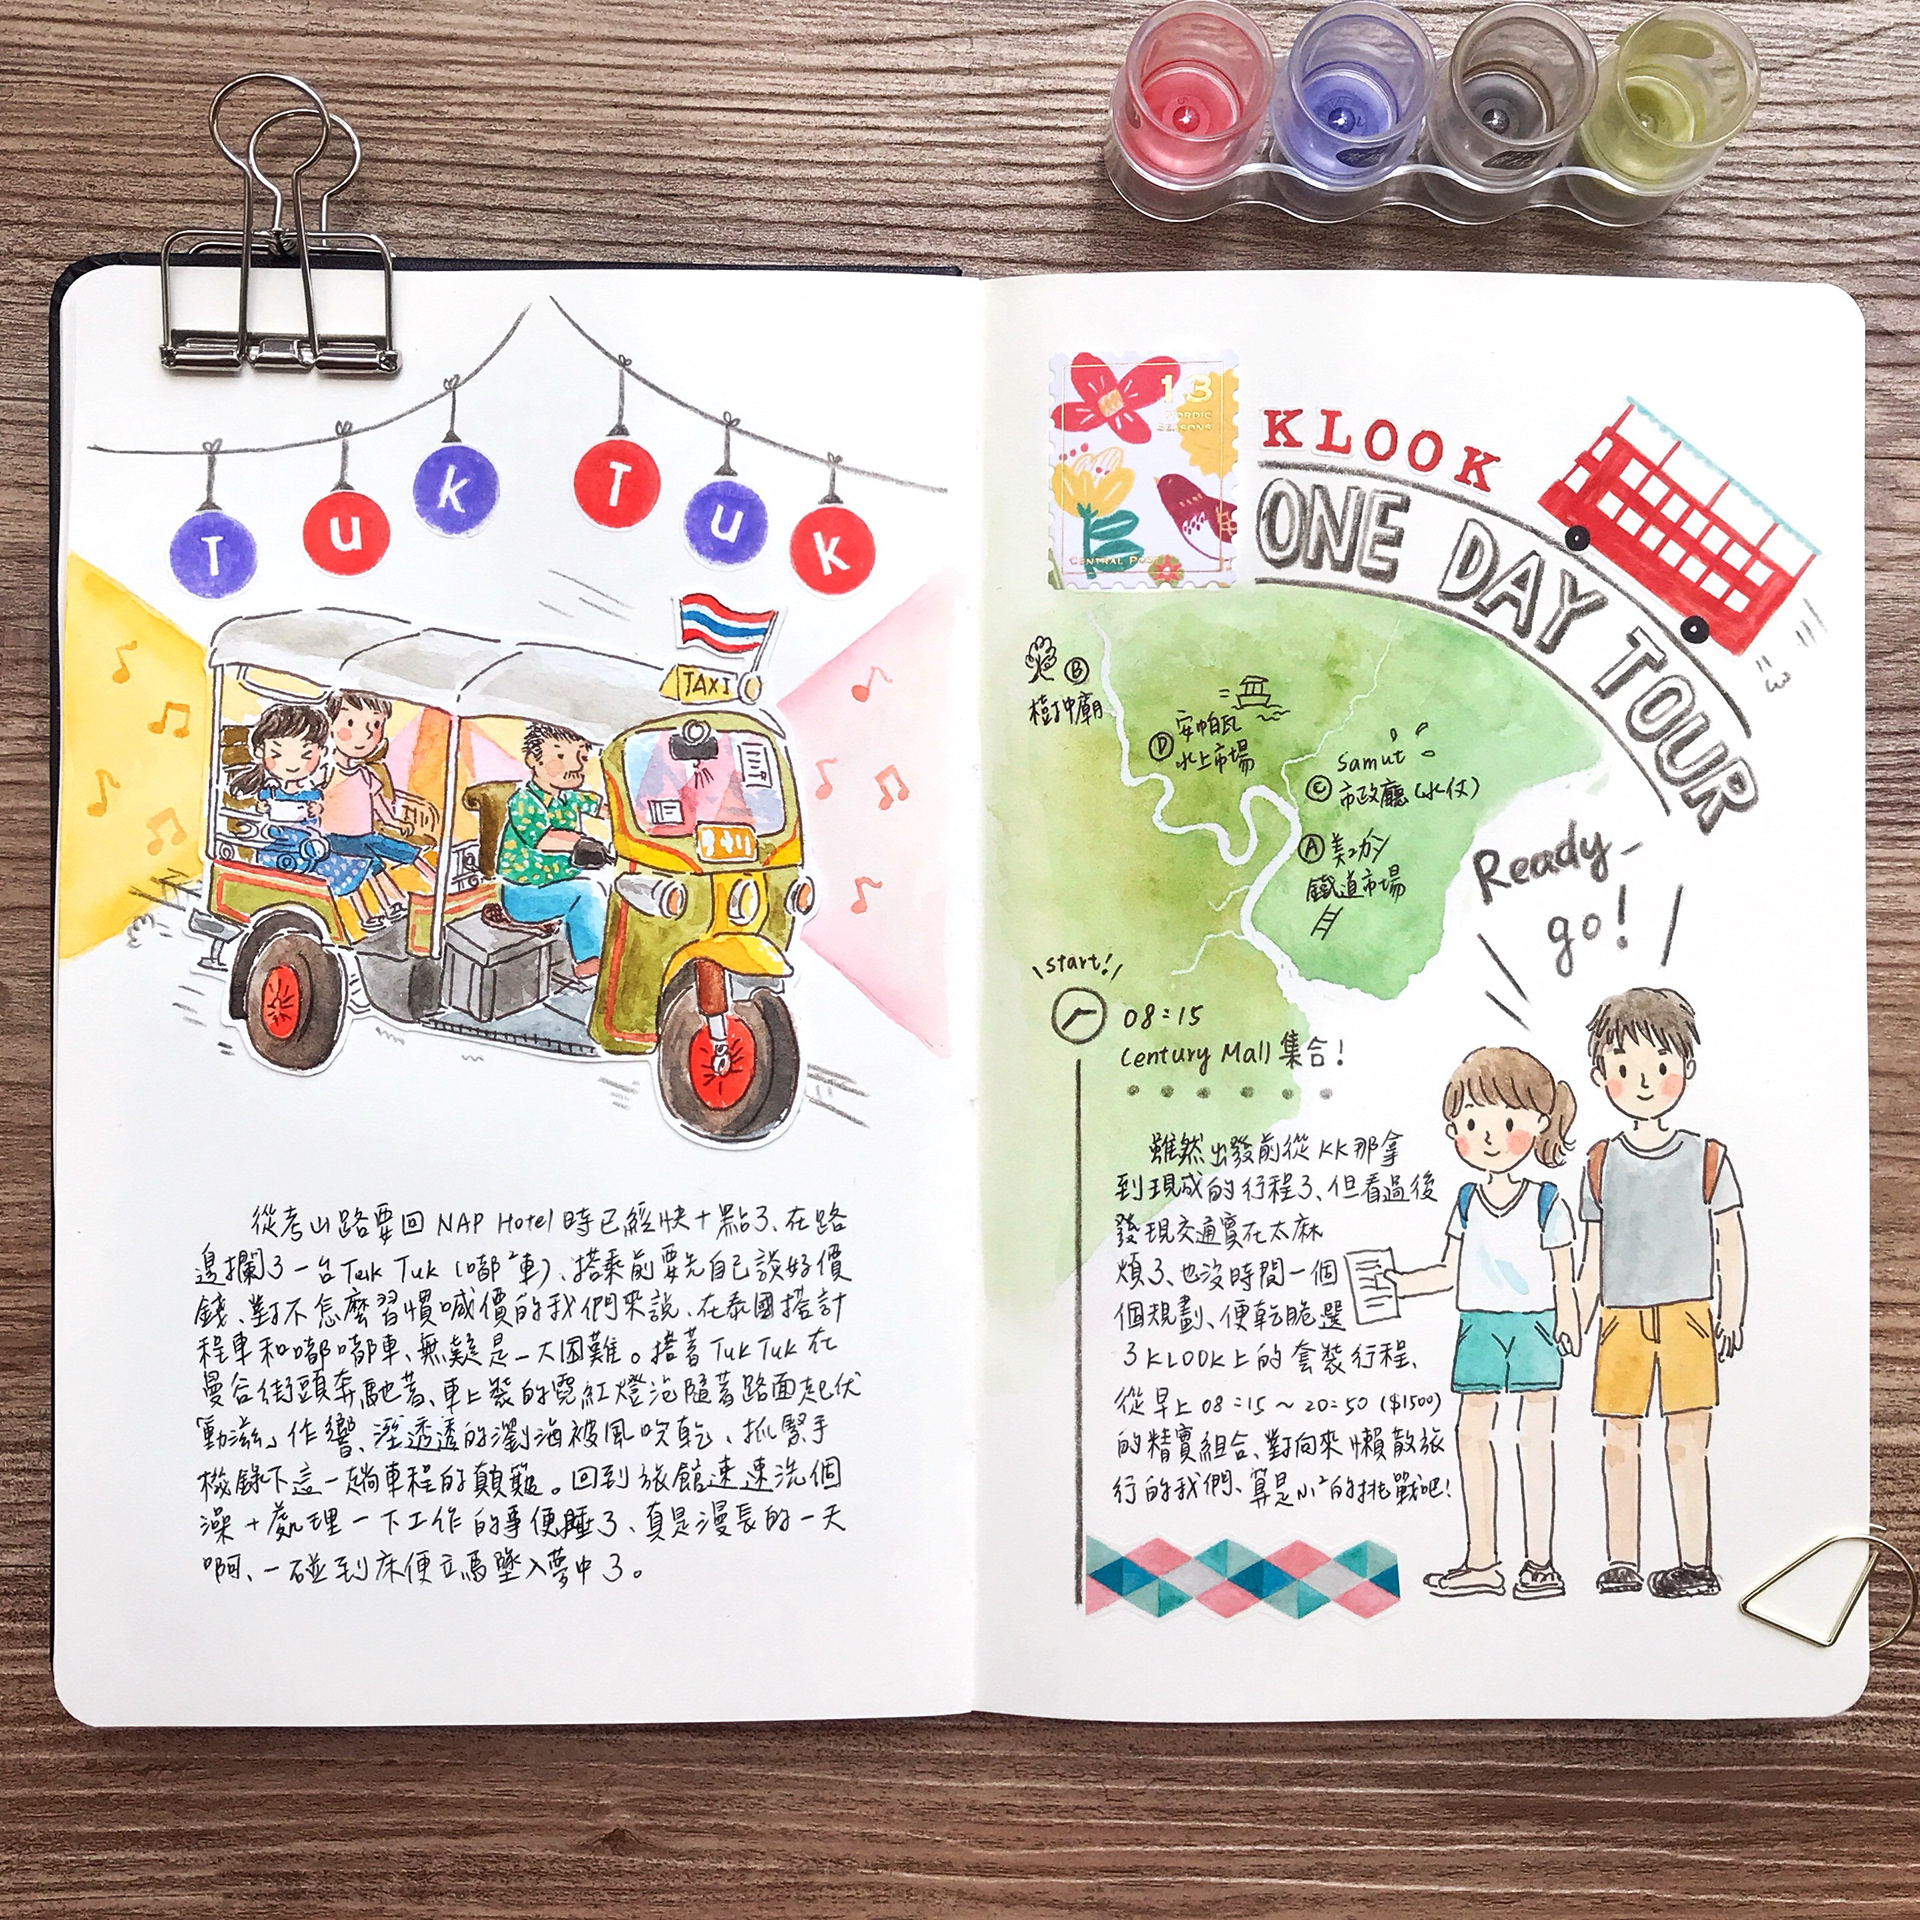 T u k T u k
TAXI
從考山路要回 NAP Hotel 時已經快十點了、在路
邊攔了一台 Tuk Tuk (嘟²車)、搭乘前要先自己談好價
錢、對不怎麼習慣喊價的我們來說、在泰國搭計
程車和嘟嘟車、無疑是一大困難。搭著 Tuk Tuk 在
曼谷街頭奔馳著、車上裝的霓紅燈泡隨著路面起伏
「動滋」作響、溼透透的瀏海被風吹乾、抓緊手
機錄下這一趟車程的顛簸。回到旅館速速洗個
澡+處理一下工作的事便睡了、真是漫長的一天
啊、一碰到床便立馬墜入夢中了。
13
NORDIC
SEASONS
CENTRAL POST
KLOOK
ONE DAY TOUR
Ⓑ
樹中廟
Ⓓ 安帕瓦
水上市場
Samut
Ⓒ 市政廳 (水仗)
Ⓐ 美功
鐵道市場
Ready-
go!
\start!/
08:15
Century Mall 集合!
雖然出發前從 KK 那拿
到現成的行程了、但看過後
發現交通實在太麻
煩了、也沒時間一個
個規劃、便乾脆選
了 KLOOK 上的套裝行程、
從早上 08:15 ~ 20:50 ($1500)
的精實組合、對向來懶散旅
行的我們、算是小²的挑戰吧!